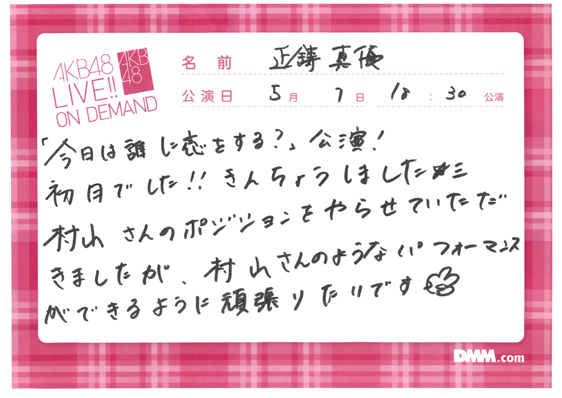 AKB48
LIVE!!
ON DEMAND
AKB
48
名前 正鋳真優
公演日 5月 7日 18:30 公演
「今日は誰に恋をする?」公演!
初日でした!! きんちょうしました
村山さんのポジションをやらせていただ
きましたが、村山さんのようなパフォーマンス
ができるように頑張りたいです
DMM.com